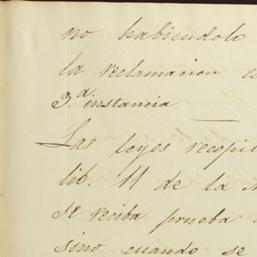 no habiendolo
la reclamacion e
3.ª instancia
Las leyes recopil
lib. 11 de la N
se reciba prueba
sino cuando se